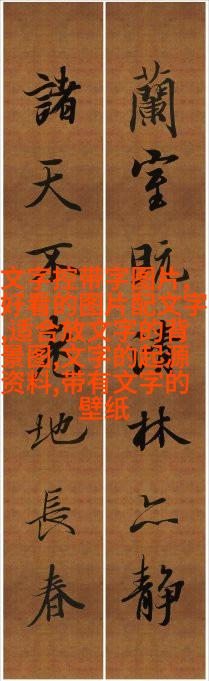 蘭室既林亦静
諸天不地長春
文字控带字图片,
好看的图片配文字
,适合放文字的背
景图,文字的起源
资料,带有文字的
壁纸